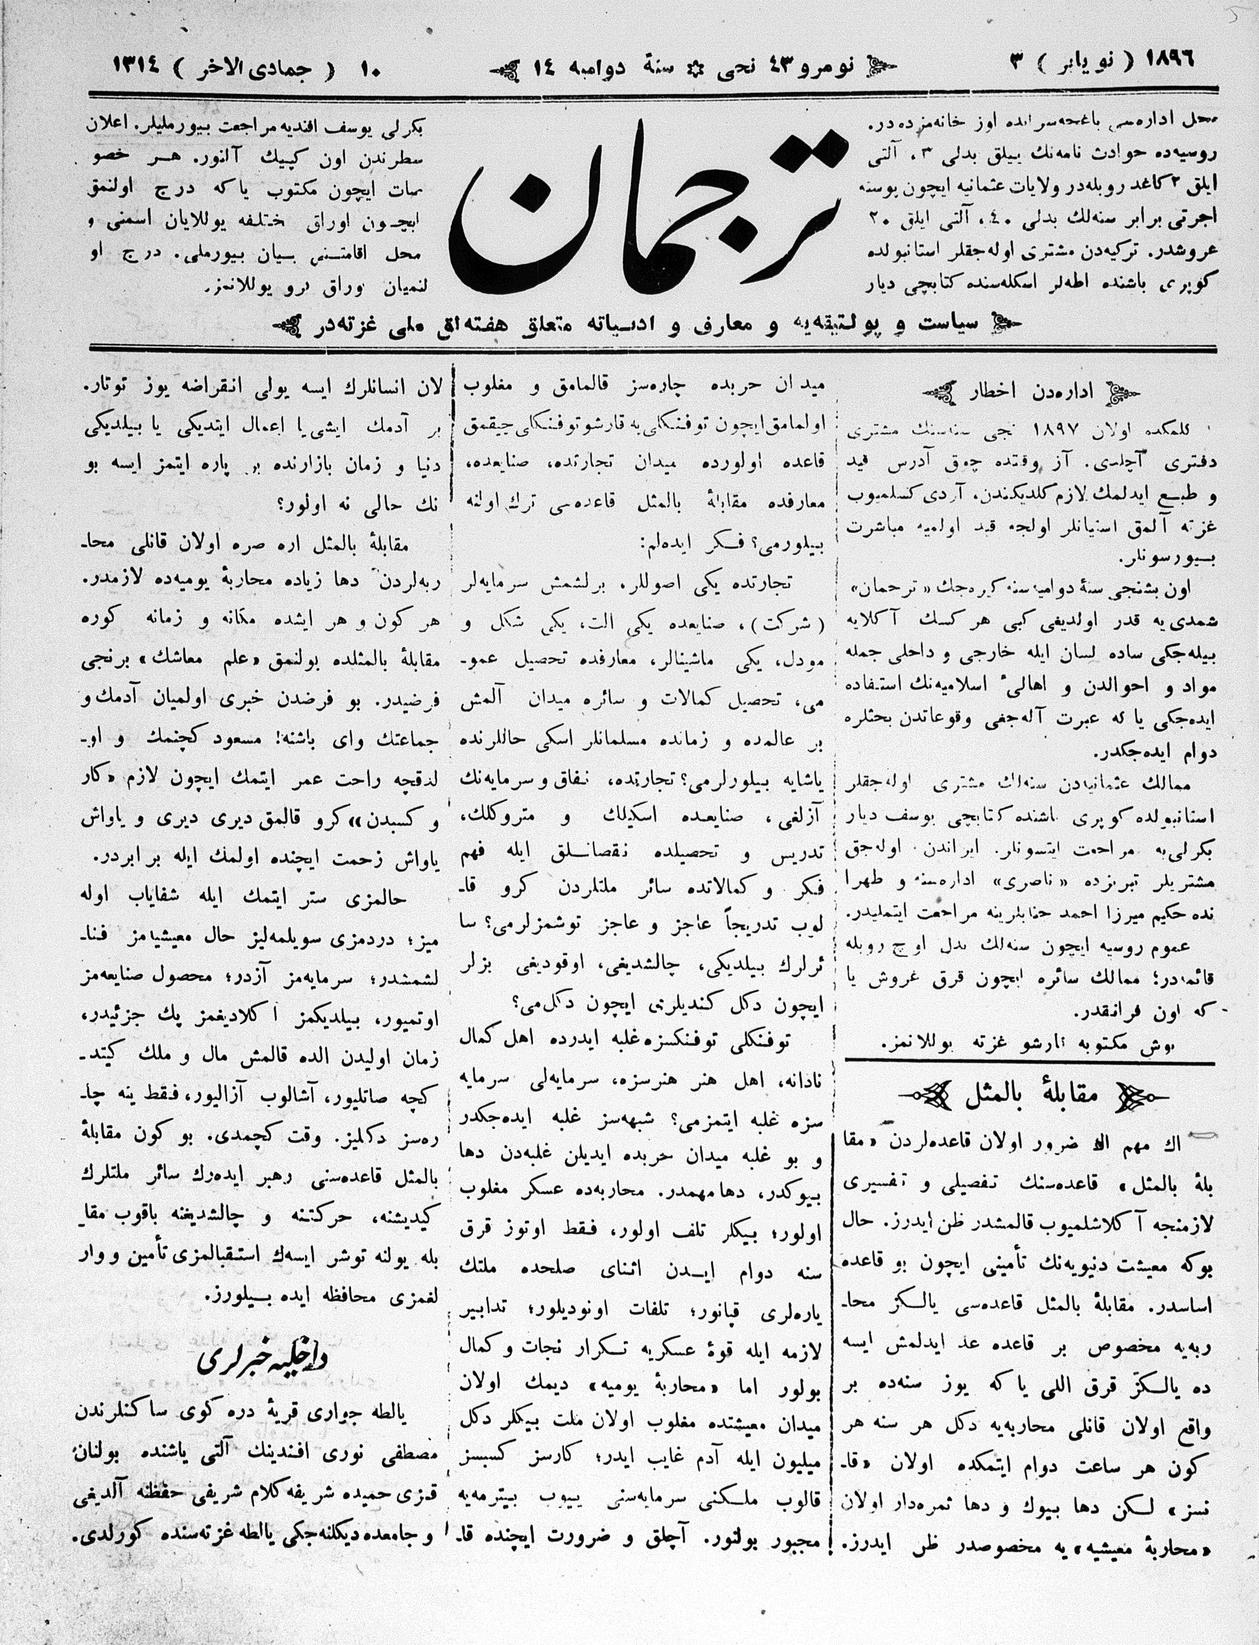 ١٨٩٦ ( نويابر ) ٣
نومرو ٤٣ نجى سنۀ دواميه ١٤
١٠ ( جمادى الاخر ) ١٣١٤
محل اداره‌سى باغچه‌سرايده اوز خانه‌مزده‌در.
روسيه‌ده حوادث نامه‌نك ييلق بدلى ٣، آلتى
ايلق ٢ كاغد روبله‌در ولايات عثمانيه ايچون پوسته
اجرتى برابر سنه‌لك بدلى ٤٠، آلتى ايلق ٢٠
غروشدر. تركيه‌دن مشترى اوله‌جقلر استانبولده
كوپرى باشنده اطه‌لر اسكله‌سنده كتابچى ديار
ترجمان
بكرلى يوسف افنديه مراجعت بيورمليلر. اعلان
سطرندن اون كپيك آلنور. هر خصو
صات ايچون مكتوب ياكه درج اولنمق
ايچون اوراق مختلفه يوللايان اسمنى و
محل اقامتنى بيان بيورملى. درج او
لنميان اوراق كرو يوللانمز.
سياست و پولتيقه‌يه و معارف و ادبياته متعلق هفته‌لق ملى غزته‌در
اداره‌دن اخطار
كلمكده اولان ١٨٩٧ نجى سنه‌سنك مشترى
دفترى آچلدى. آز وقتده چوق آدرس قيد
و طبع ايدلمك لازم كلديكندن، آردى كسلميوب
غزته آلمق استيانلر اولجه قيد اولميه مباشرت
بيورسونلر.
اون بشنجى سنۀ دواميه‌سنه كيره‌جك «ترجمان»
شمدى‌يه قدر اولديغى كبى هر كسك آكلايه
بيله‌جكى ساده لسان ايله خارجى و داخلى جمله
مواد و احوالدن و اهالئ اسلاميه‌نك استفاده
ايده‌جكى يا له عبرت آله‌جغى وقوعاتدن بحثلره
دوام ايده‌جكدر.
ممالك عثمانيه‌دن سنه‌لك مشترى اوله‌جقلر
استانبولده كوپرى باشنده كتابچى يوسف ديار
بكرلى‌يه مراجعت ايتسونلر. ايراندن اوله‌جق
مشتريلر تبريزده «ناصرى» اداره‌سنه و طهرا
نده حكيم ميرزا احمد جنابلرينه مراجعت ايتمليدر.
عموم روسيه ايچون سنه‌لك بدل اوچ روبله
قائمه‌در؛ ممالك سائره ايچون قرق غروش يا
كه اون فرانقدر.
بوش مكتوبه قارشو غزته يوللانمز.
مقابلۀ بالمثل
اك مهم الك ضرور اولان قاعده‌لردن «مقا
بلۀ بالمثل» قاعده‌سنك تفصيلى و تفسيرى
لازمنجه آكلاشلميوب قالمشدر ظن ايدرز. حال
بوكه معيشت دنيويه‌نك تأمينى ايچون بو قاعده
اساسدر. مقابلۀ بالمثل قاعده‌سى يالكز محا‍
ربه‌يه مخصوص بر قاعده عد ايدلمش ايسه
ده يالكز قرق اللى ياكه يوز سنه‌ده بر
واقع اولان قانلى محاربه‌يه دكل هر سنه هر
كون هر ساعت دوام ايتمكده اولان «قا‍
نسز» لكن دها بيوك و دها ثمره‌دار اولان
«محاربۀ معيشيه» يه مخصوصدر ظن ايدرز.
ميدان حربده چاره‌سز قالمامق و مغلوب
اولمامق ايچون توفنكلى‌يه قارشو توفنكلى چيقمق
قاعده اولورده ميدان تجارتده، صنايعده،
معارفده مقابلۀ بالمثل قاعده‌سى ترك اولنه
بيلورمى؟ فكر ايده‌لم:
تجارتده يكى اصوللر. برلشمش سرمايه‌لر
(شركت)، صنايعده يكى الت، يكى شكل و
مودل، يكى ماشينالر، معارفده تحصيل عمو‍
مى، تحصيل كمالات و سائره ميدان آلمش
بر عالمده و زمانده مسلمانلر اسكى حاللرنده
ياشايه بيلورلرمى؟ تجارتده، نفاق و سرمايه‌نك
آزلغى، صنايعده اسكيلك و متروكلك،
تدريس و تحصيلده نقصانلق ايله فهم
فكر و كمالاتده سائر ملتلردن كرو قا‍
لوب تدريجاً عاجز و عاجز توشمزلرمى؟ سا
ئرلرك بيلديكى، چالشديغى، اوقوديغى بزلر
ايچون دكل كنديلرى ايچون دكل‌مى؟
توفنكلى توفنكسزه غلبه ايدرده اهل كمال
نادانه، اهل هنر هنرسزه، سرمايه‌لى سرمايه
سزه غلبه ايتمزمى؟ شبهه‌سز غلبه ايده‌جكدر
و بو غلبه ميدان حربده ايديلن غلبه‌دن دها
بيوكدر، دها مهمدر. محاربه‌ده عسكر مغلوب
اولور؛ بيكلر تلف اولور، فقط اوتوز قرق
سنه دوام ايدن اثناى صلحده ملتك
ياره‌لرى قپانور؛ تلفات اونوديلور؛ تدابير
لازمه ايله قوۀ عسكريه تكرار نجات و كمال
بولور اما «محاربۀ يوميه» ديمك اولان
ميدان معيشتده مغلوب اولان ملت بيكلر دكل
ميليون ايله آدم غايب ايدر؛ كارسز كسبسز
قالوب ملكنى سرمايه‌سنى ييوب بيترمه‌يه
مجبور بولنور. آچلق و ضرورت ايچنده قا‍
لان انسانلرك ايسه يولى انقراضه يوز توتار.
بر آدمك ايشى يا اعمال ايتديكى يا بيلديكى
دنيا و زمان بازارنده بر پاره ايتمز ايسه بو
نك حالى نه اولور؟
مقابلۀ بالمثل اره صره اولان قانلى محا‍
ربه‌لردن دها زياده محاربۀ يوميه‌ده لازمدر.
هر كون و هر ايشده مكانه و زمانه كوره
مقابلۀ بالمثلده بولنمق «علم معاشك» برنجى
فرضيدر. بو فرضدن خبرى اولميان آدمك و
جماعتك واى باشنه! مسعود كچنمك و او‍
لدقچه راحت عمر ايتمك ايچون لازم «كار
و كسبدن» كرو قالمق ديرى ديرى و ياواش
ياواش زحمت ايچنده اولمك ايله برابردر.
حالمزى ستر ايتمك ايله شفاياب اوله
ميز؛ دردمزى سويلمه‌ليز حال معيشيه‌مز فنا‍
لشمشدر؛ سرمايه‌مز آزدر؛ محصول صنايعه‌مز
اوتميور، بيلديكمز آكلاديغمز پك جزئيدر،
زمان اوليدن الده قالمش مال و ملك كيتد‍
كچه صاتليور، آشالوب آزاليور، فقط ينه چا‍
ره‌سز دكلميز. وقت كچمدى. بو كون مقابلۀ
بالمثل قاعده‌سنى رهبر ايده‌رك سائر ملتلرك
كيديشنه، حركتنه و چالشديغنه باقوب مقا‍
بله يولنه توشر ايسه‌ك استقبالمزى تأمين و وار
لغمزى محافظه ايده بيلورز.
داخليه خبرلرى
يالطه جوارى قريۀ دره كوى ساكنلرندن
مصطفى نورى افندينك آلتى ياشنده بولنان
قزى حميده شريفه كلام شريفى حفظنه آلديغى
و جامعده ديكلنه‌جكى يالطه غزته‌سنده كورلدى.